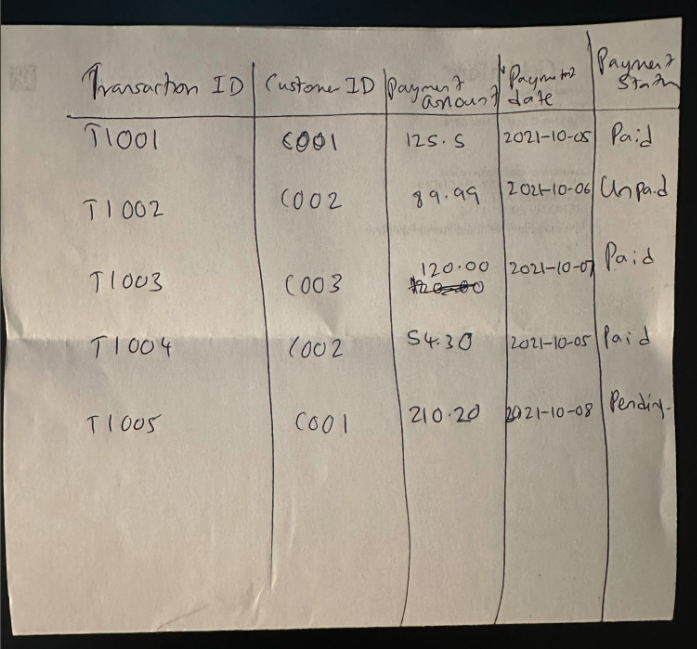 Transaction ID Customer ID Payment amount Payment date Payment Status
T1001 C001 125.5 2021-10-05 Paid
T1002 C002 89.99 2021-10-06 Unpaid
T1003 C003 120.00 2021-10-07 Paid
T1004 C002 54.30 2021-10-05 Paid
T1005 C001 210.20 2021-10-08 Pending.